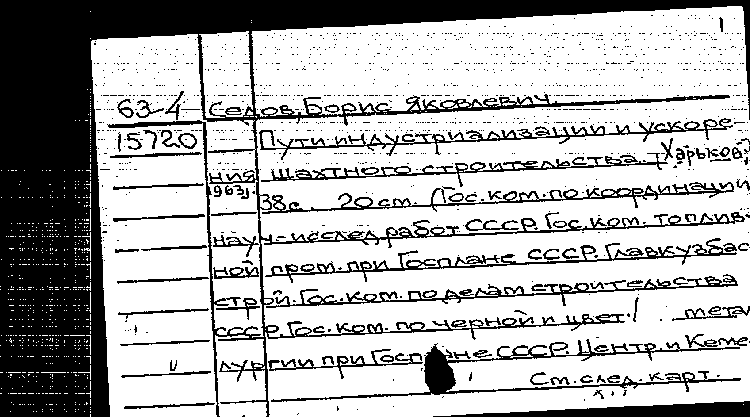 1
63-4 Седов, Борис Яковлевич.
15720 Пути индустриализации и ускоре-
ния шахтного строительства. [Харьков,
1963].
38с. 20 см. (Гос. ком. по координации
науч-исслед. работ СССР. Гос. ком. топлив-
ной пром. при Госплане СССР. Главкузбас
строй. Гос. ком. по делам строительства
СССР. Гос. ком. по черной и цвет. метал
лургии при Госплане СССР. Центр. и Кеме
См. след. карт.